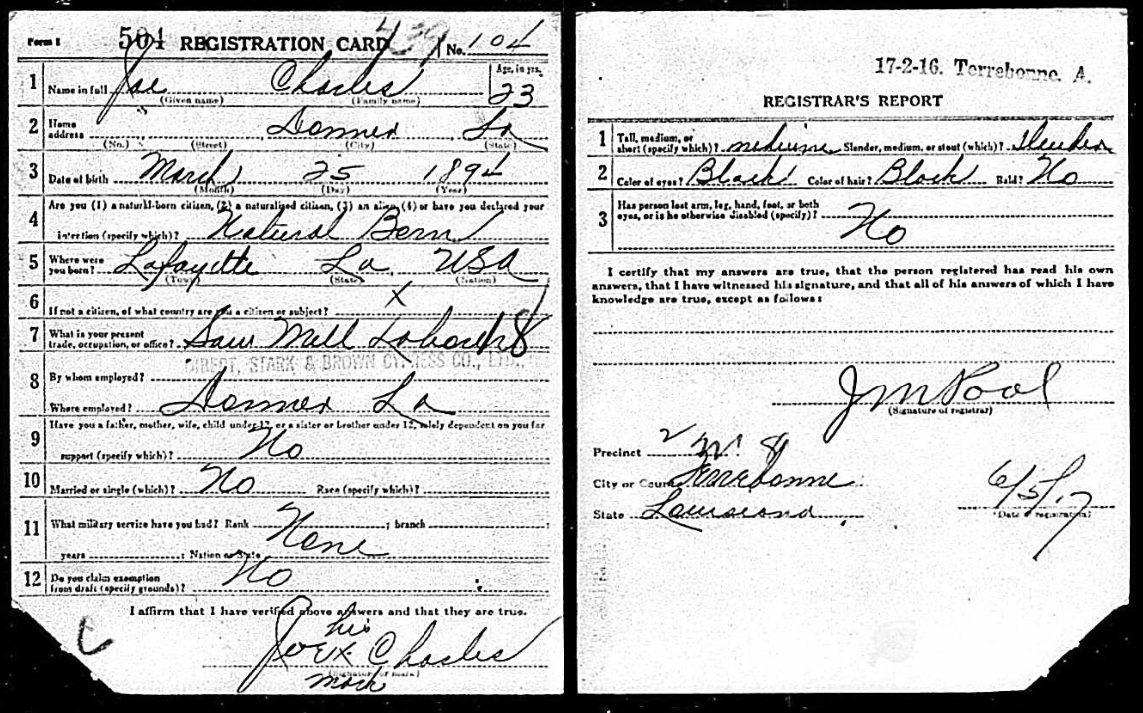 Form 1 504 REGISTRATION CARD 439 No. 104
1 Name in full Joe Charles Age, in yrs. 23
(Given name) (Family name)
2 Home address Donner La
(No.) (Street) (City) (State)
3 Date of birth March 25 1894
(Month) (Day) (Year)
4 Are you (1) a natural-born citizen, (2) a naturalized citizen, (3) an alien, (4) or have you declared your
intention (specify which)? Natural Born
5 Where were you born? Lafayette La. USA
(Town) (State) (Nation)
6 If not a citizen, of what country are you a citizen or subject? X
7 What is your present trade, occupation, or office? Saw Mill Laborer 18
DIBERT, STARK & BROWN CYPRESS CO., LTD.,
8 By whom employed?
Where employed? Donner La
9 Have you a father, mother, wife, child under 12, or a sister or brother under 12, solely dependent on you for
support (specify which)? No
10 Married or single (which)? No Race (specify which)?
11 What military service have you had? Rank None ; branch ;
years ; Nation or State
12 Do you claim exemption from draft (specify grounds)? No
I affirm that I have verified above answers and that they are true.
his
Joe X Charles
(Signature or mark)
mark
17-2-16. Terrebonne. A.
REGISTRAR'S REPORT
1 Tall, medium, or short (specify which)? medium Slender, medium, or stout (which)? Slender
2 Color of eyes? Black Color of hair? Black Bald? No
3 Has person lost arm, leg, hand, foot, or both eyes, or is he otherwise disabled (specify)? No
I certify that my answers are true, that the person registered has read his own
answers, that I have witnessed his signature, and that all of his answers of which I have
knowledge are true, except as follows:
J M Pool
(Signature of registrar)
Precinct 2 W. 8
City or County Terrebonne
State Louisiana
6/5/17
(Date of registration)